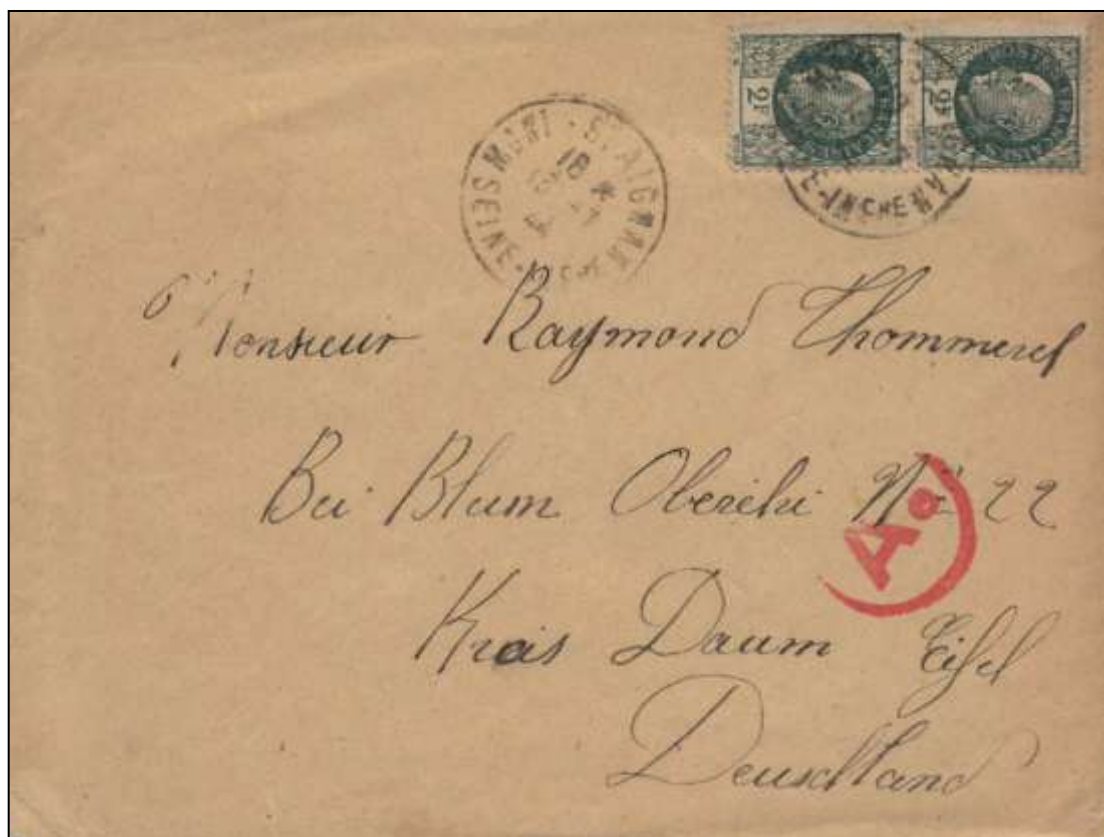 2F 2F
MONT-ST AIGNAN
18
SEINE-INFRE
Monsieur Raymond Thommerel
Bei Blum Oberehi Nº 22
A.
Kreis Daum Eifel
Deuschland